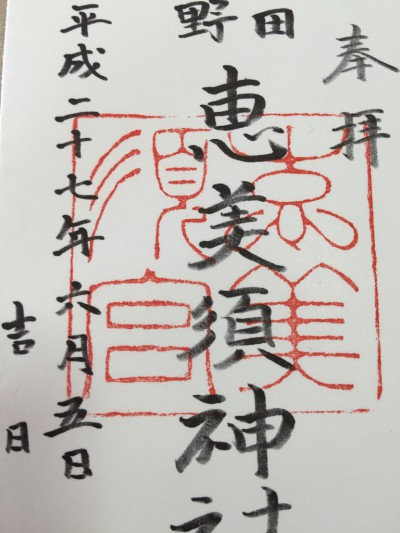 奉拝
野田
恵美須神社
平成二十七年六月五日
吉日
恵美須宮